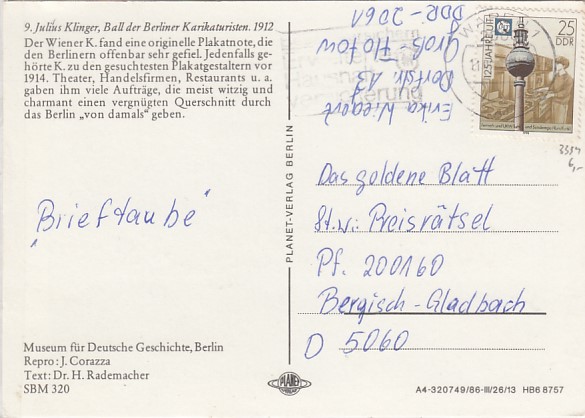 9. Julius Klinger, Ball der Berliner Karikaturisten. 1912
Der Wiener K. fand eine originelle Plakatnote, die
den Berlinern offenbar sehr gefiel. Jedenfalls ge-
hörte K. zu den gesuchtesten Plakatgestaltern vor
1914. Theater, Handelsfirmen, Restaurants u. a.
gaben ihm viele Aufträge, die meist witzig und
charmant einen vergnügten Querschnitt durch
das Berlin „von damals" geben.
„Brieftaube"
Museum für Deutsche Geschichte, Berlin
Repro: J. Corazza
Text: Dr. H. Rademacher
SBM 320
PLANET-VERLAG BERLIN
PLANET
Erika
Dorfstr. 13
Groß-Flotow
DDR-2061
25
DDR
125 JAHRE
Das goldene Blatt
St.w.: Preisrätsel
Pf. 200160
Bergisch-Gladbach
D 5060
A4-320749/86-III/26/13 HB6 8757
3354
6,-